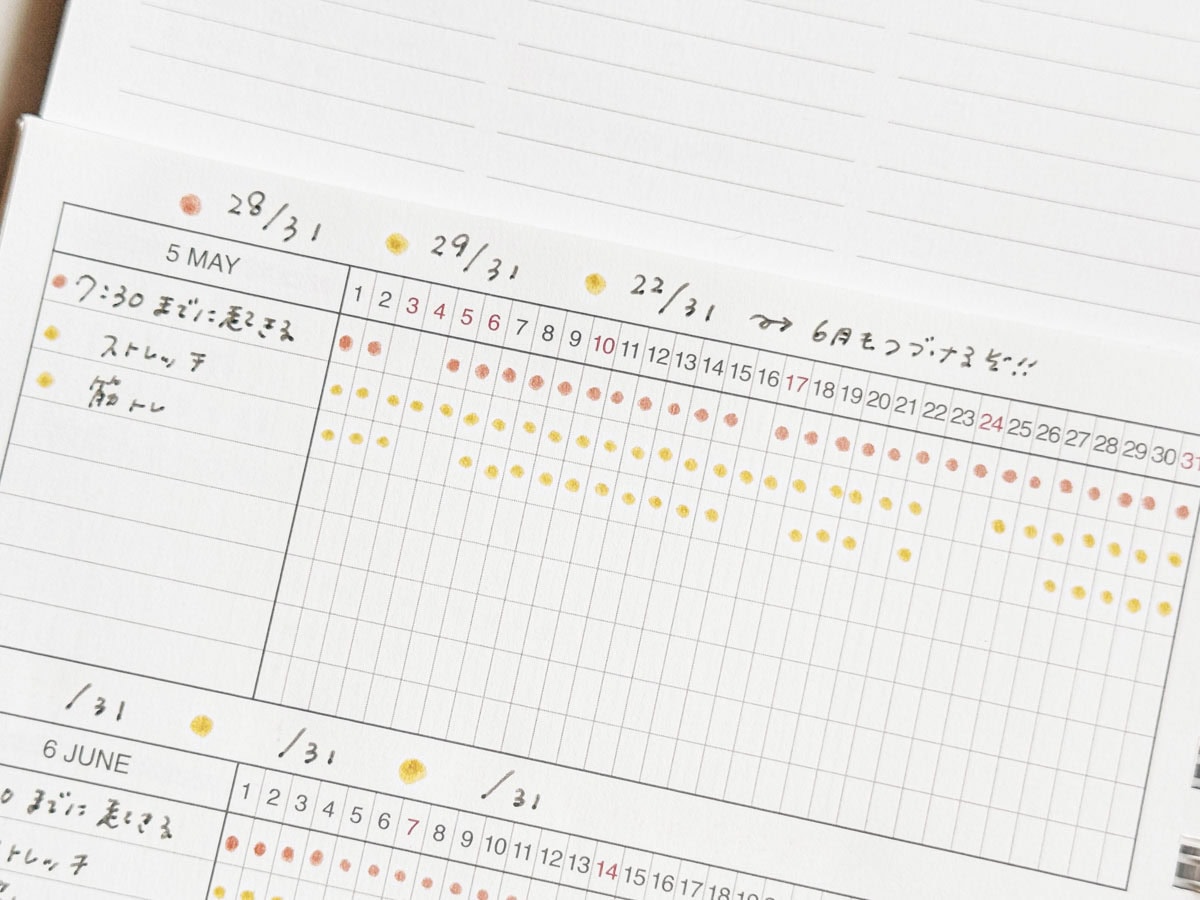 28/31 29/31 22/31 〜→ 6月もつづけるぞ!!
5 MAY 1 2 3 4 5 6 7 8 9 10 11 12 13 14 15 16 17 18 19 20 21 22 23 24 25 26 27 28 29 30 31
7:30 までに起きる
ストレッチ
筋トレ
/31 /31 /31
6 JUNE 1 2 3 4 5 6 7 8 9 10 11 12 13 14 15 16 17 18
0 までに起きる
トレッチ